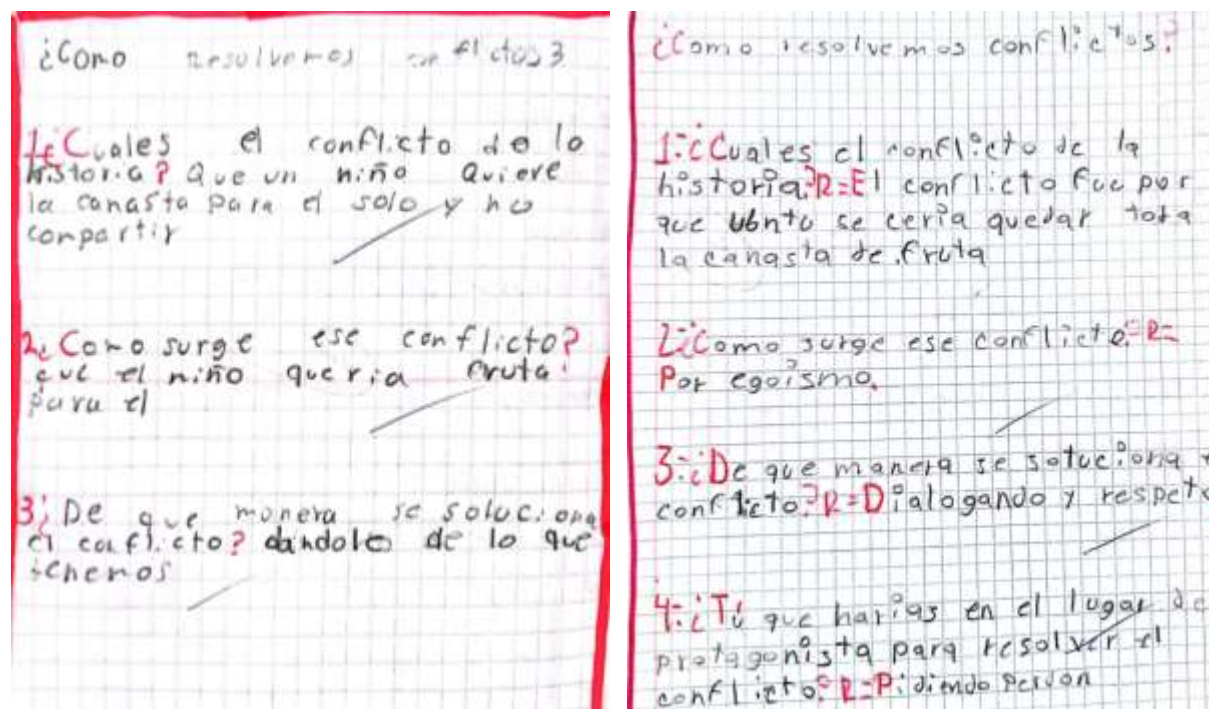 ¿Como resolvemos conflictos?
1¿Cuales el conflicto de la
historia? Que un niño Quiere
la canasta para el solo y no
compartir
2¿Como surge ese conflicto?
que el niño queria fruta
para el
3¿De que manera se soluciona
el conflicto? dandole de lo que
tenemos
¿Como resolvemos conflictos?
1:¿Cuales el conflicto de la
historia?R=El conflicto fue por
que ubntu se ceria quedar tota
la canasta de fruta
2:¿Como surge ese conflicto?R=
Por egoismo.
3:¿De que manera se soluciona
conflicto?R=Dialogando y respeto
4:¿Tú que harias en el lugar de
protagonista para resolver el
conflicto?R=Pidiendo perdon